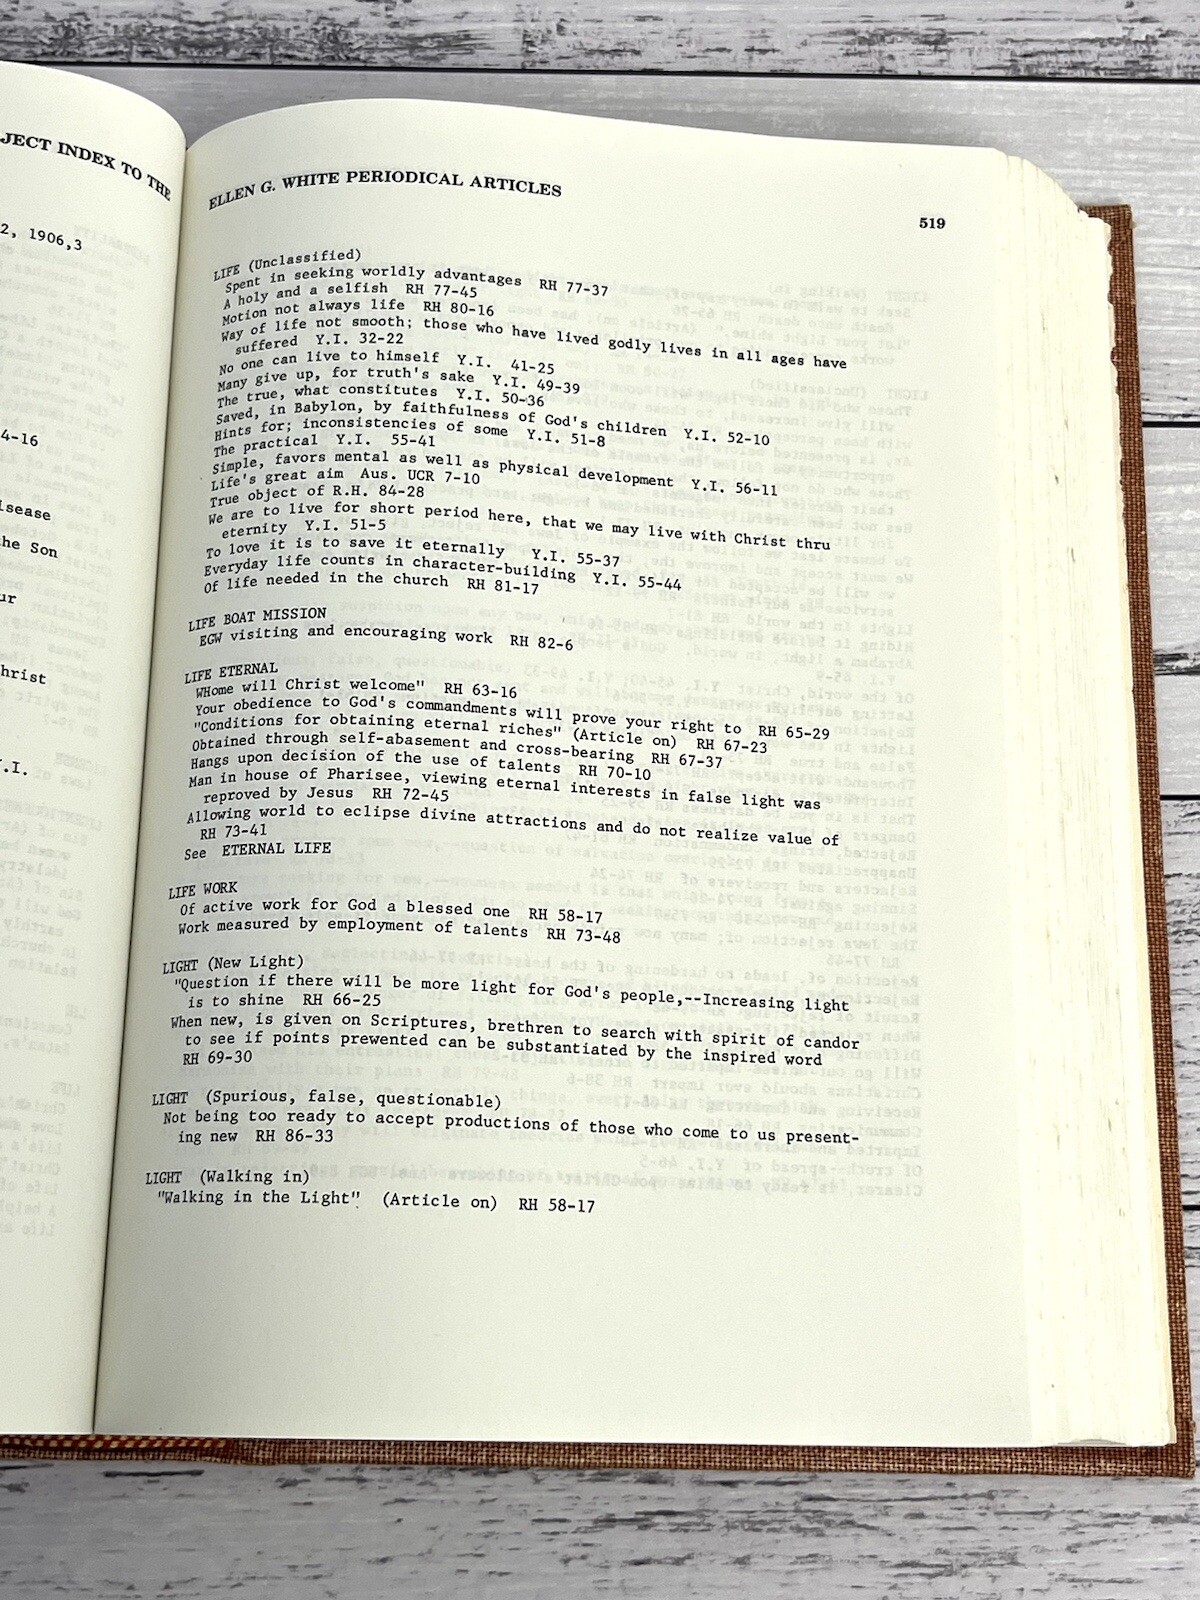 JECT INDEX TO THE
2, 1906,3
4-16
isease
he Son
ur
hrist
.I.
ELLEN G. WHITE PERIODICAL ARTICLES
519
LIFE (Unclassified)
Spent in seeking worldly advantages RH 77-37
A holy and a selfish RH 77-45
Motion not always life RH 80-16
Way of life not smooth; those who have lived godly lives in all ages have
suffered Y.I. 32-22
No one can live to himself Y.I. 41-25
Many give up, for truth's sake Y.I. 49-39
The true, what constitutes Y.I. 50-36
Saved, in Babylon, by faithfulness of God's children Y.I. 52-10
Hints for; inconsistencies of some Y.I. 51-8
The practical Y.I. 55-41
Simple, favors mental as well as physical development Y.I. 56-11
Life's great aim Aus. UCR 7-10
True object of R.H. 84-28
We are to live for short period here, that we may live with Christ thru
eternity Y.I. 51-5
To love it is to save it eternally Y.I. 55-37
Everyday life counts in character-building Y.I. 55-44
Of life needed in the church RH 81-17
LIFE BOAT MISSION
EGW visiting and encouraging work RH 82-6
LIFE ETERNAL
WHome will Christ welcome" RH 63-16
Your obedience to God's commandments will prove your right to RH 65-29
"Conditions for obtaining eternal riches" (Article on) RH 67-23
Obtained through self-abasement and cross-bearing RH 67-37
Hangs upon decision of the use of talents RH 70-10
Man in house of Pharisee, viewing eternal interests in false light was
reproved by Jesus RH 72-45
Allowing world to eclipse divine attractions and do not realize value of
RH 73-41
See ETERNAL LIFE
LIFE WORK
Of active work for God a blessed one RH 58-17
Work measured by employment of talents RH 73-48
LIGHT (New Light)
"Question if there will be more light for God's people,--Increasing light
is to shine RH 66-25
When new, is given on Scriptures, brethren to search with spirit of candor
to see if points prewented can be substantiated by the inspired word
RH 69-30
LIGHT (Spurious, false, questionable)
Not being too ready to accept productions of those who come to us present-
ing new RH 86-33
LIGHT (Walking in)
"Walking in the Light". (Article on) RH 58-17